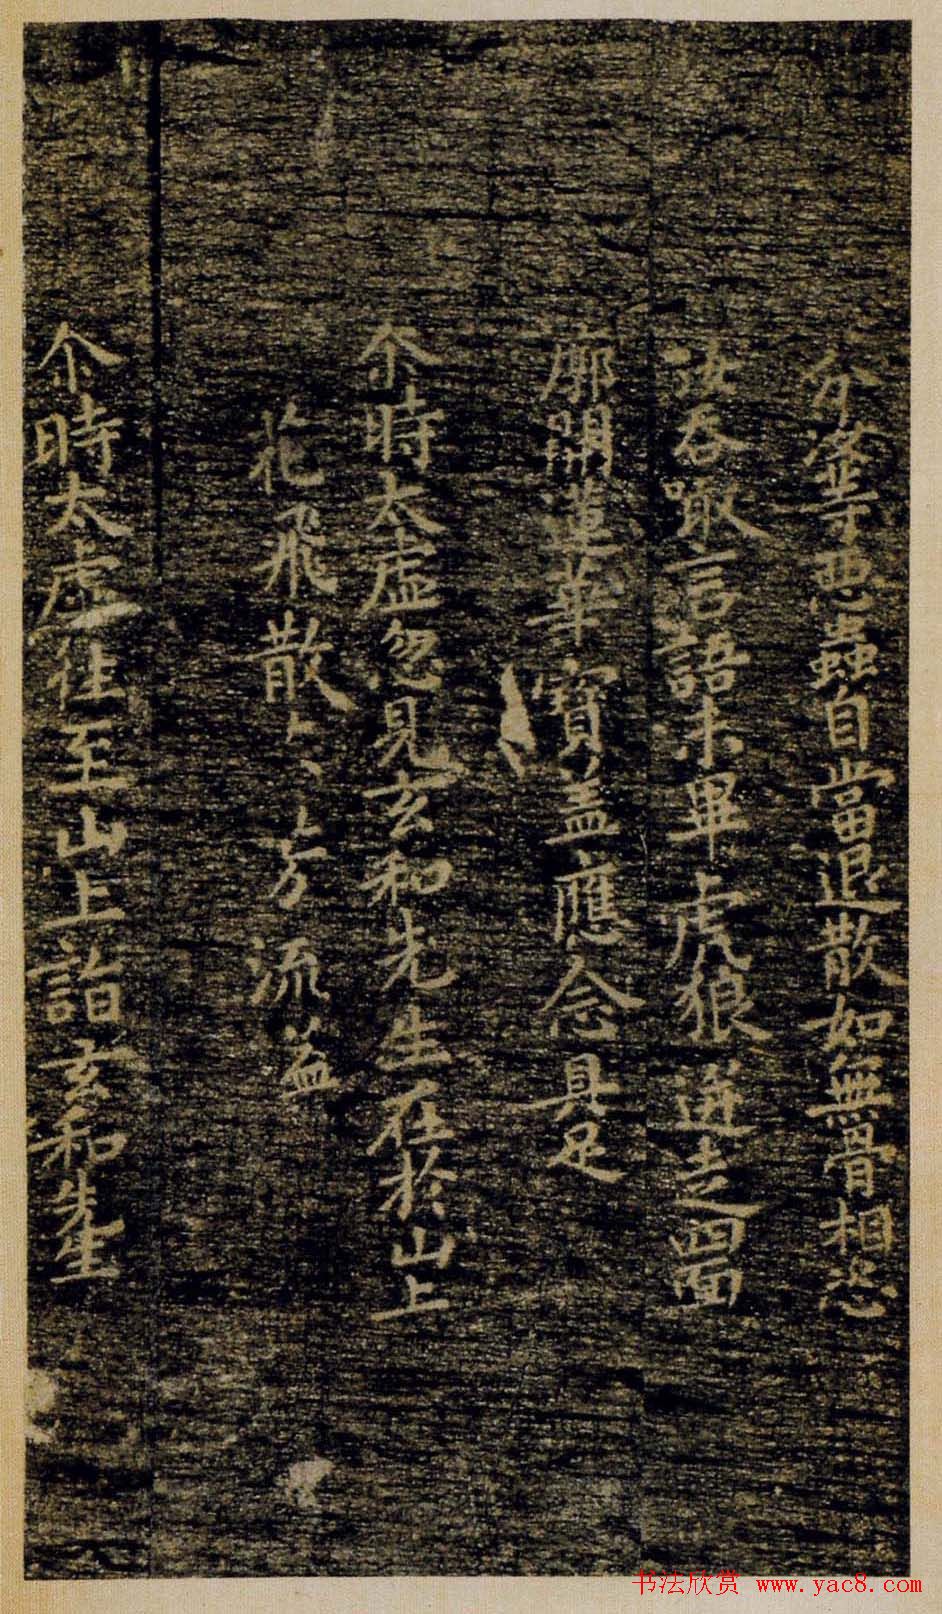 分湌等惡蟲自當退散如無骨相恣
汝吞噉言語未畢虎狼迸走四面
廓開蓮華寶盖應念具足
尒時太虛忽見玄和先生在於山上
花飛散六方流盖
尒時太虛往至山上詣玄和先生
书法欣赏 www.yac8.com